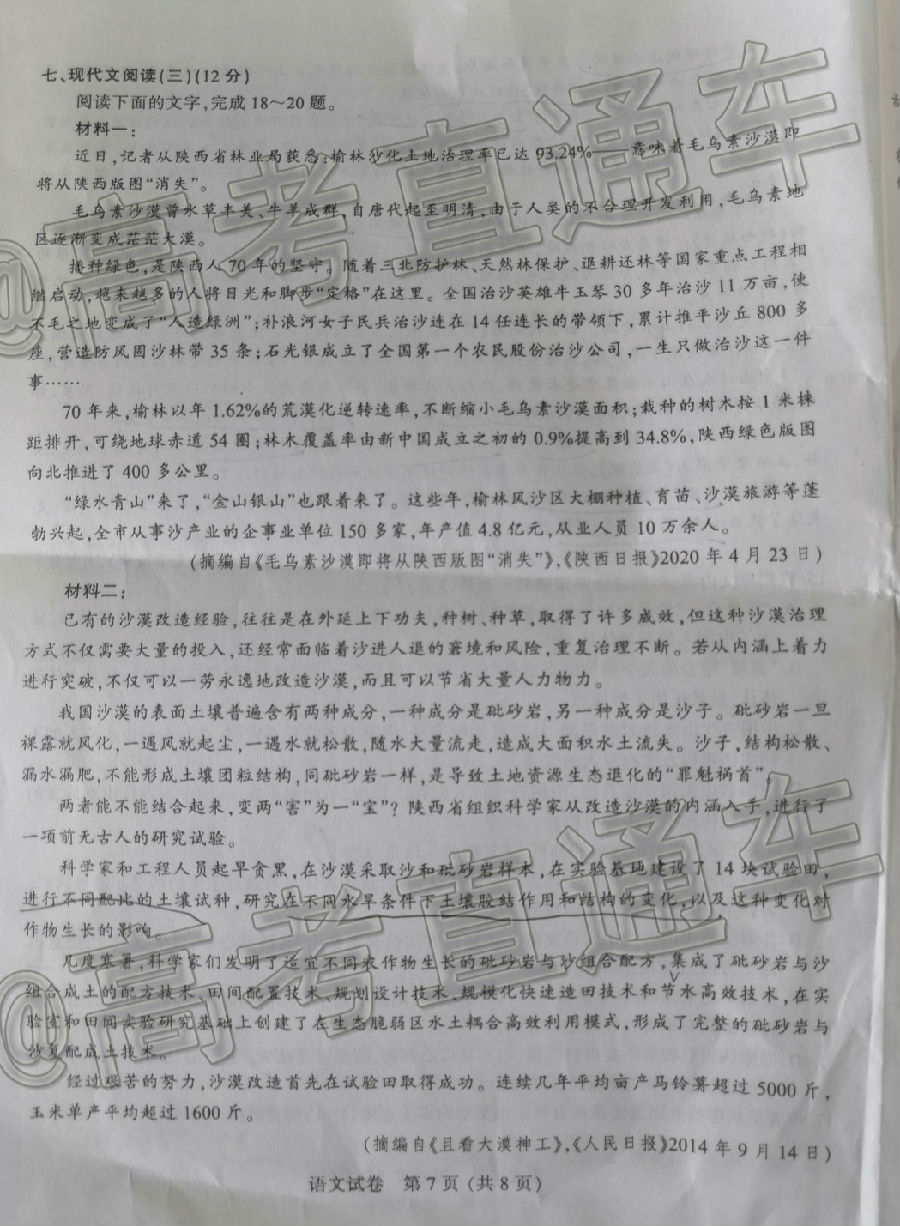 七、现代文阅读(三)(12分)
阅读下面的文字,完成18～20题。
材料一:
近日,记者从陕西省林业局获悉:榆林沙化土地治理率已达93.24%——意味着毛乌素沙漠即
将从陕西版图“消失”。
毛乌素沙漠曾水草丰美、牛羊成群,自唐代起至明清,由于人类的不合理开发利用,毛乌素地
区逐渐变成茫茫大漠。
播种绿色,是陕西人70年的坚守。随着三北防护林、天然林保护、退耕还林等国家重点工程相
继启动,越来越多的人将目光和脚步“定格”在这里。全国治沙英雄牛玉琴30多年治沙11万亩,使
不毛之地变成了“人造绿洲”;补浪河女子民兵治沙连在14任连长的带领下,累计推平沙丘800多
座,营造防风固沙林带35条;石光银成立了全国第一个农民股份治沙公司,一生只做治沙这一件
事……
70年来,榆林以年1.62%的荒漠化逆转速率,不断缩小毛乌素沙漠面积;栽种的树木按1米株
距排开,可绕地球赤道54圈;林木覆盖率由新中国成立之初的0.9%提高到34.8%,陕西绿色版图
向北推进了400多公里。
“绿水青山”来了,“金山银山”也跟着来了。这些年,榆林风沙区大棚种植、育苗、沙漠旅游等蓬
勃兴起,全市从事沙产业的企事业单位150多家,年产值4.8亿元,从业人员10万余人。
(摘编自《毛乌素沙漠即将从陕西版图“消失”》,《陕西日报》2020年4月23日)
材料二:
已有的沙漠改造经验,往往是在外延上下功夫,种树、种草,取得了许多成效,但这种沙漠治理
方式不仅需要大量的投入,还经常面临着沙进人退的窘境和风险,重复治理不断。若从内涵上着力
进行突破,不仅可以一劳永逸地改造沙漠,而且可以节省大量人力物力。
我国沙漠的表面土壤普遍含有两种成分,一种成分是砒砂岩,另一种成分是沙子。砒砂岩一旦
裸露就风化,一遇风就起尘,一遇水就松散,随水大量流走,造成大面积水土流失。沙子,结构松散、
漏水漏肥,不能形成土壤团粒结构,同砒砂岩一样,是导致土地资源生态退化的“罪魁祸首”。
两者能不能结合起来,变两“害”为一“宝”?陕西省组织科学家从改造沙漠的内涵入手,进行了
一项前无古人的研究试验。
科学家和工程人员起早贪黑,在沙漠采取沙和砒砂岩样本,在实验基地建设了14块试验田,
进行不同配比的土壤试种,研究在不同水旱条件下土壤胶结作用和结构的变化,以及这种变化对
作物生长的影响。
几度寒暑,科学家们发明了适宜不同农作物生长的砒砂岩与沙组合配方,集成了砒砂岩与沙
组合成土的配方技术、田间配置技术、规划设计技术、规模化快速造田技术和节水高效技术,在实
验室和田间实验研究基础上创建了在生态脆弱区水土耦合高效利用模式,形成了完整的砒砂岩与
沙复配成土技术。
经过艰苦的努力,沙漠改造首先在试验田取得成功。连续几年平均亩产马铃薯超过5000斤,
玉米单产平均超过1600斤。
(摘编自《且看大漠神工》,《人民日报》2014年9月14日)
语文试卷 第7页(共8页)
@高考直通车
@高考直通车